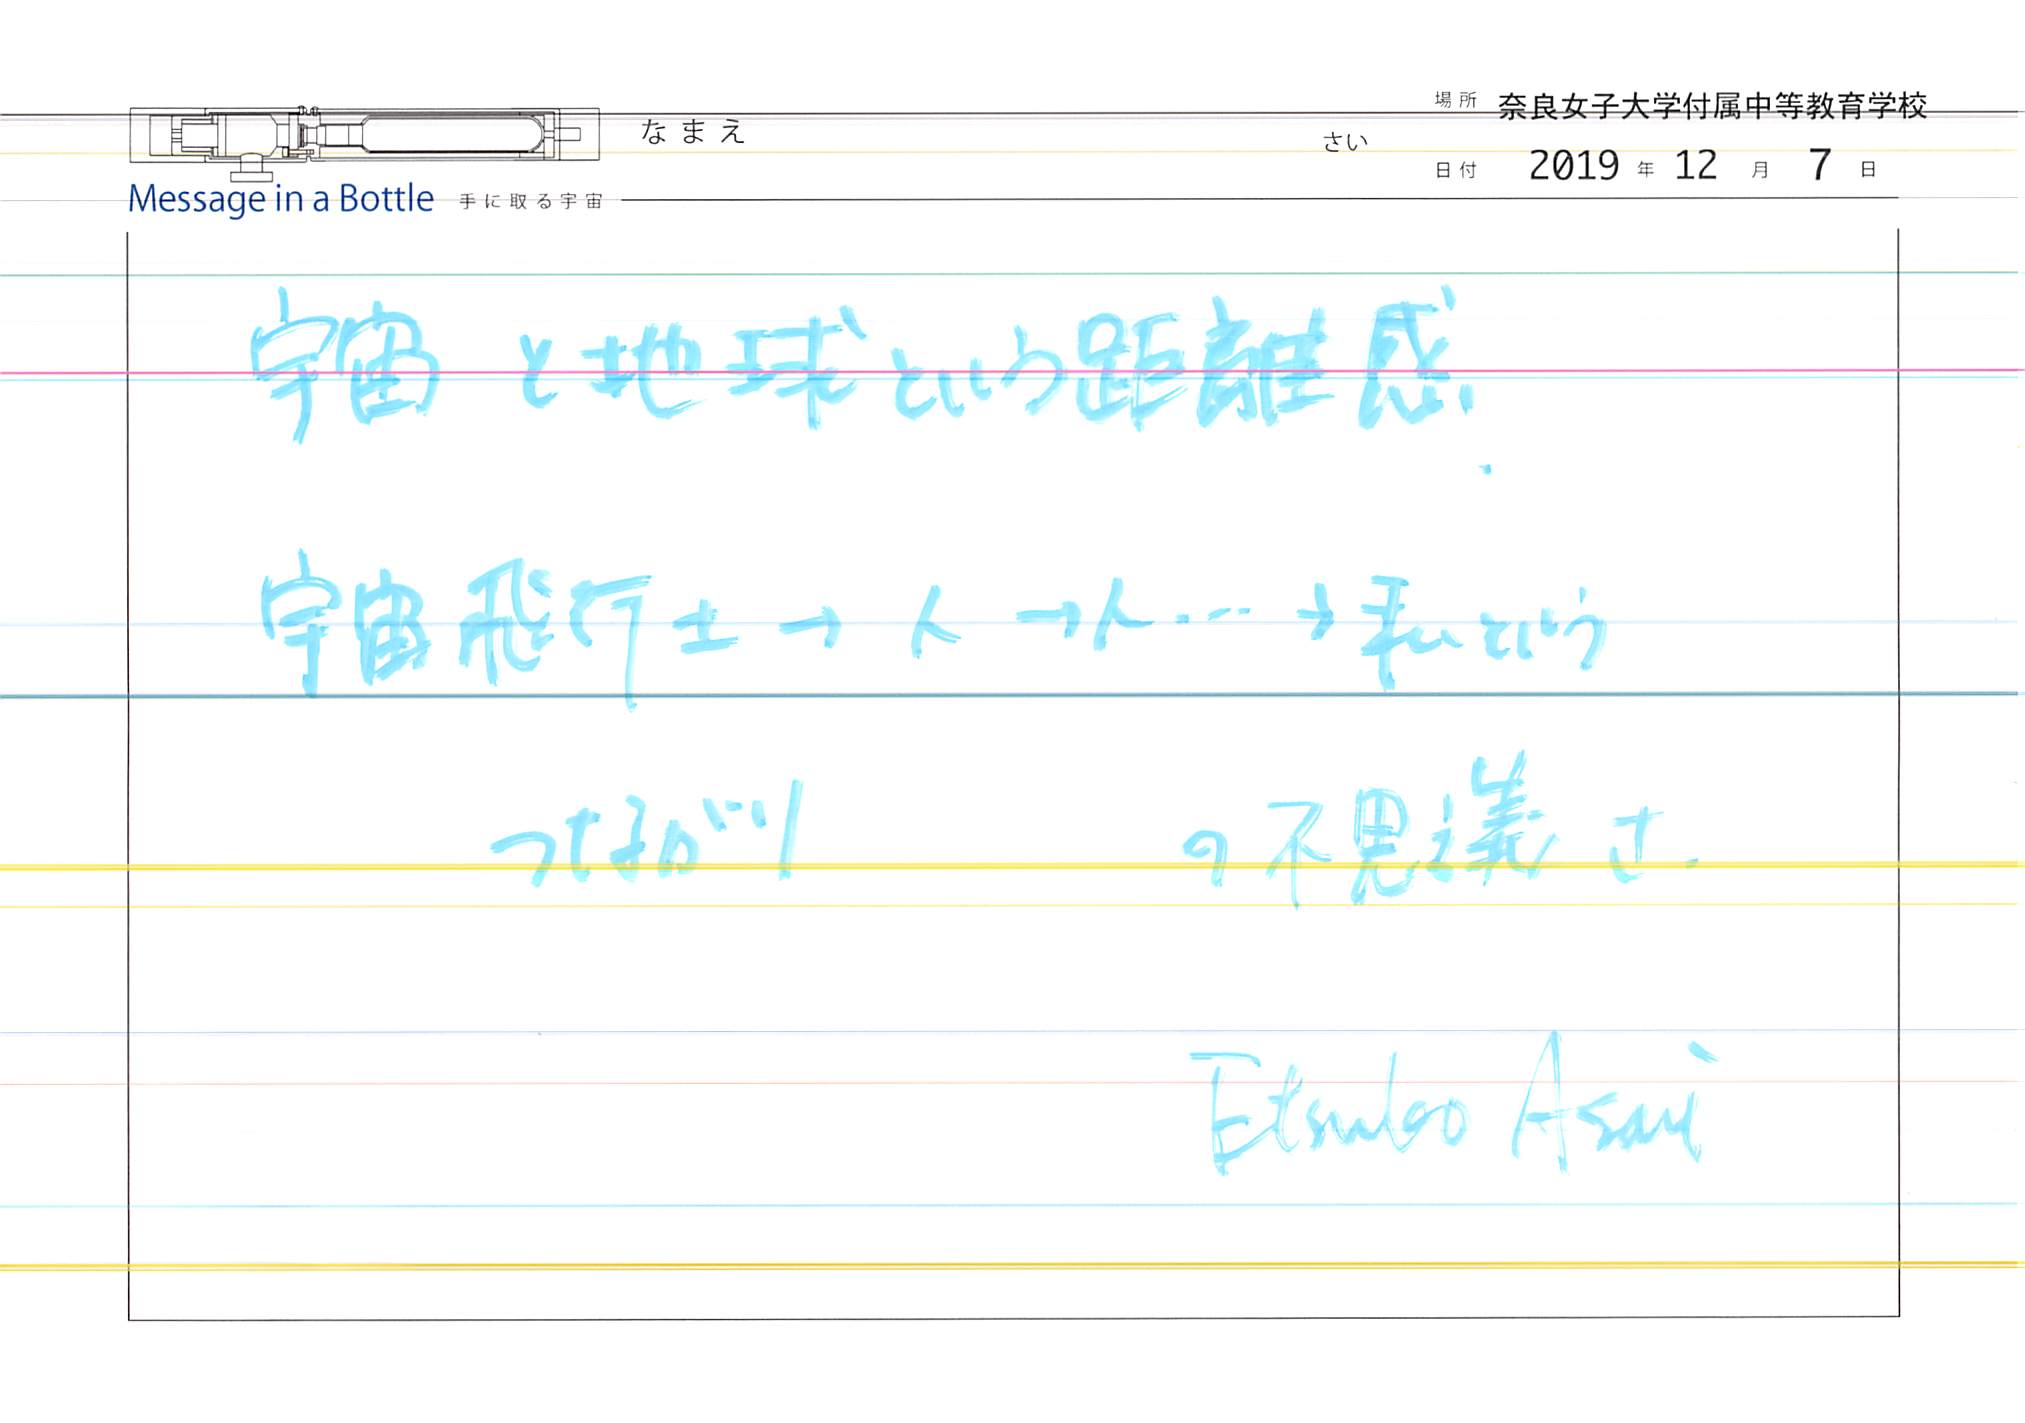 場所 奈良女子大学付属中等教育学校
なまえ さい
日付 2019 年 12 月 7 日
Message in a Bottle 手に取る宇宙
宇宙と地球という距離感.
宇宙飛行士→人→人…→私という
つながり の不思議さ.
Etsuko Asai